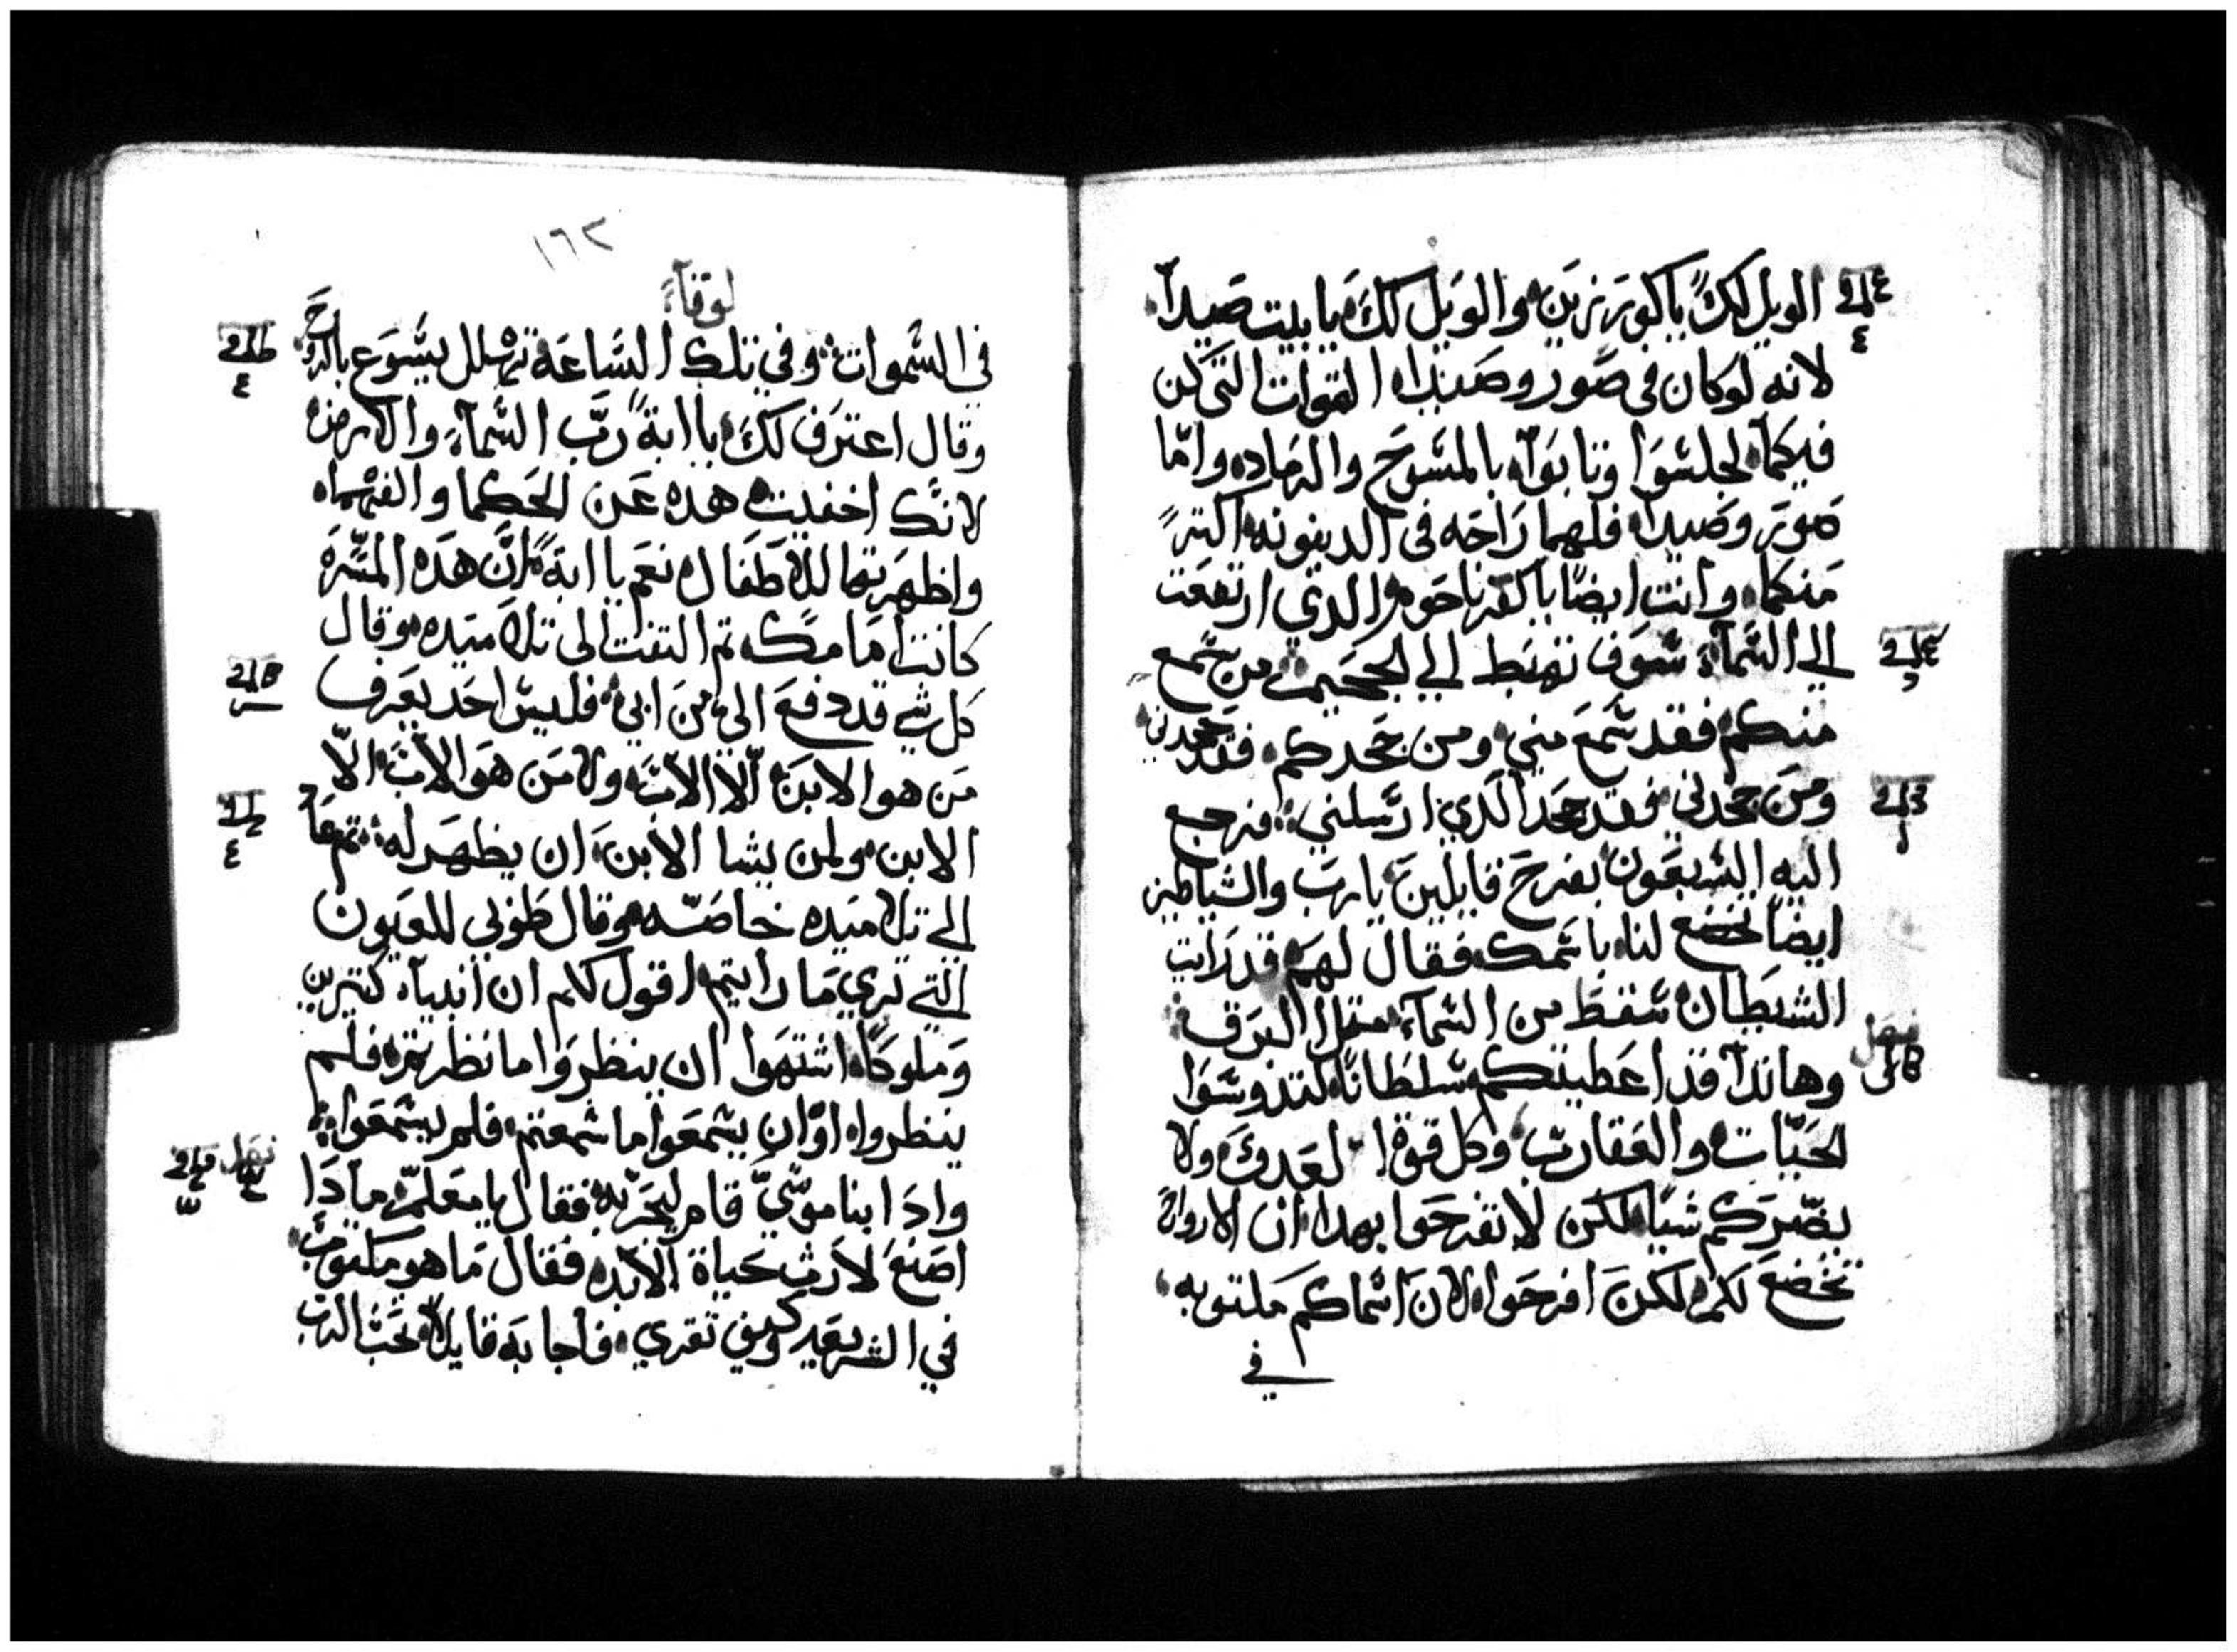 الويل لك يا كورزين والويل لك يا بيت صيدا
لانه لو كان في صور وصيدا القوات التي كن
فيكما لجلسوا وتابوا بالمسوح والرماد واما
صور وصيدا فلهما راحه في الدينونه اكتر
منكما وانت ايضا يا كفرناحوم الذي ارتفعت
الي السماء سوف تهبط الي الجحيم من سمع
منكم فقد سمع مني ومن جحدكم فقد جحدني
ومن جحدني فقد جحد الذي ارسلني فرجع
اليه السبعون بفرح قايلين يا رب والشياطين
ايضا تخضع لنا باسمك فقال لهم قد رايت
الشيطان سقط من السماء متل البرق
وهانذا قد اعطيتكم سلطانا لتدوسوا
الحيات والعقارب وكل قوة العدو ولا
يضركم شيا لكن لا تفرحوا بهدا ان الارواح
تخضع لكم لكن افرحوا لان اسماكم مكتوبه
في
١٦٢
لوقا
في السموات وفي تلك الساعة تهلل يسوع بالروح
وقال اعترف لك يا ابة رب السماء والارض
لانك اخفيت هده عن الحكما والفهما
واظهرتها للاطفال نعم يا ابة ان هده المسرة
كانت امامك تم التفت الى تلاميده وقال
كل شي قد دفع الي من ابي فليس احد يعرف
من هو الابن الا الاب ولا من هو الاب الا
الابن ولمن يشا الابن ان يظهر له تم عاد
الي تلاميده خاصة وقال طوبي للعيون
التي تري ما رايتم اقول لكم ان انبياء كتيرين
وملوكا اشتهوا ان ينظروا ما نظرتم فلم
ينظروا وان يسمعوا ما سمعتم فلم يسمعوا
وادا بناموسي قام ليجربه فقال يا معلم مادا
اصنع لارث حياة الابد فقال ما هو مكتوب
في الشريعه كيف تقري فاجابه قايلا تحب الرب